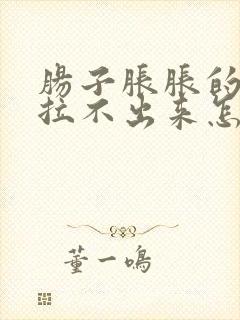 腸子脹脹的
拉不出来怎
董一鳴